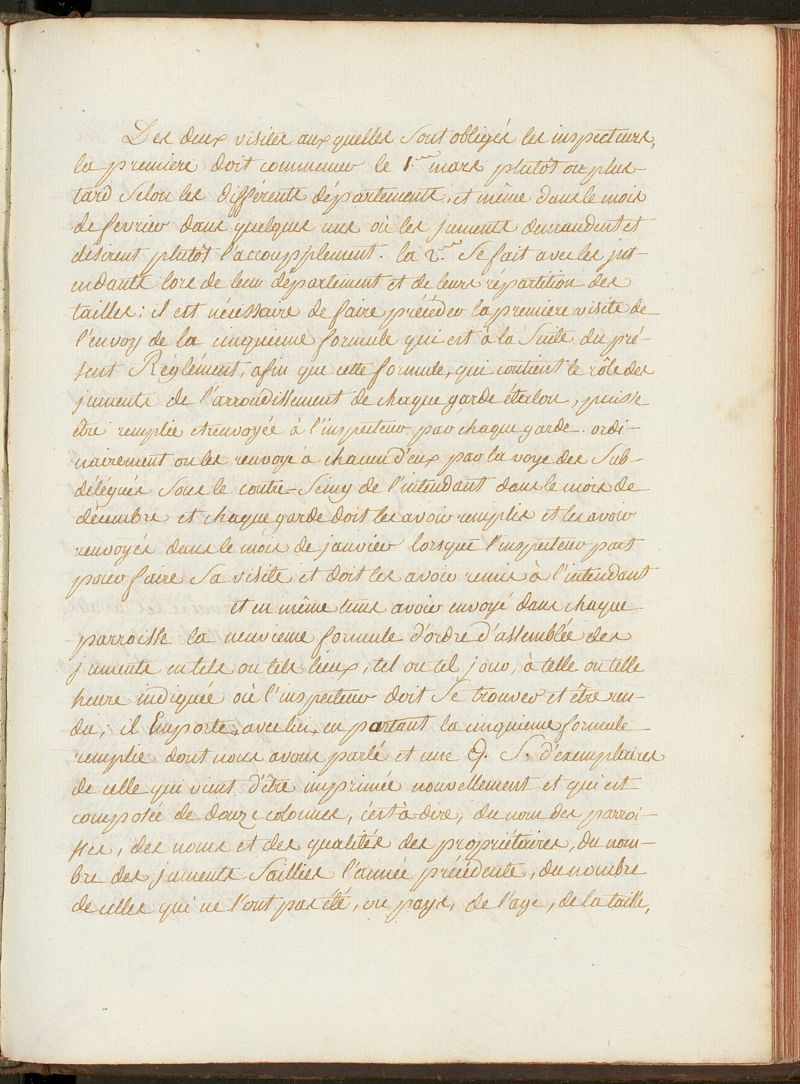 Des deux visites auxquelles sont obligés les inspecteurs,
la premiere doit commencer le 1.er mars plutôt ou plus-
tard selon les différents départements, et même dans le mois
de fevrier dans quelques uns où les juments demandent et
désirent plutôt l'accoupplement. la 2.de se fait avec les int-
endants lors de leur département et de leurs répartition des
tailles ; il est nécessaire de faire précéder la premiere visite de
l'envoy de la cinquieme formule qui est à la suite du pré-
sent Réglément, afin que cette formule, qui contient le rôle des
juments de l'arrondissement de chaque garde étalon, puisse
être remplie et renvoyée à l'inspecteur par chaque garde. ordi-
nairement on les renvoye à chacun d'eux par la voye des sub-
délégués sous le contre-seing de l'intendant dans le mois de
décembre et chaque garde doit les avoir remplis et les avoir
renvoyés dans le mois de janvier lorsque l'inspecteur part
pour faire sa visite et doit les avoir remis à l'intendant
et en même tems avoir envoyé dans chaque
parroisse la neuvieme formule d'ordre d'assemblée des
juments en tels ou tels lieux, tel ou tel jour, à telle ou telle
heure indiquée où l'inspecteur doit se trouver et être ren-
du ; il Emporte, avec lui, en partant la cinquieme formule
remplie dont nous avons parlé et une Q. S. d'exemplaires
de celle qui vient d'être imprimée nouvellement et qui est
composée de douze colonnes, c'est à dire, du nom des parroi-
sses, des noms et des qualités des propriétaires, du nom-
bre des juments saillies l'année précédente, du nombre
de celles qui ne l'ont pas été, du pays, de l'age, de la taille,